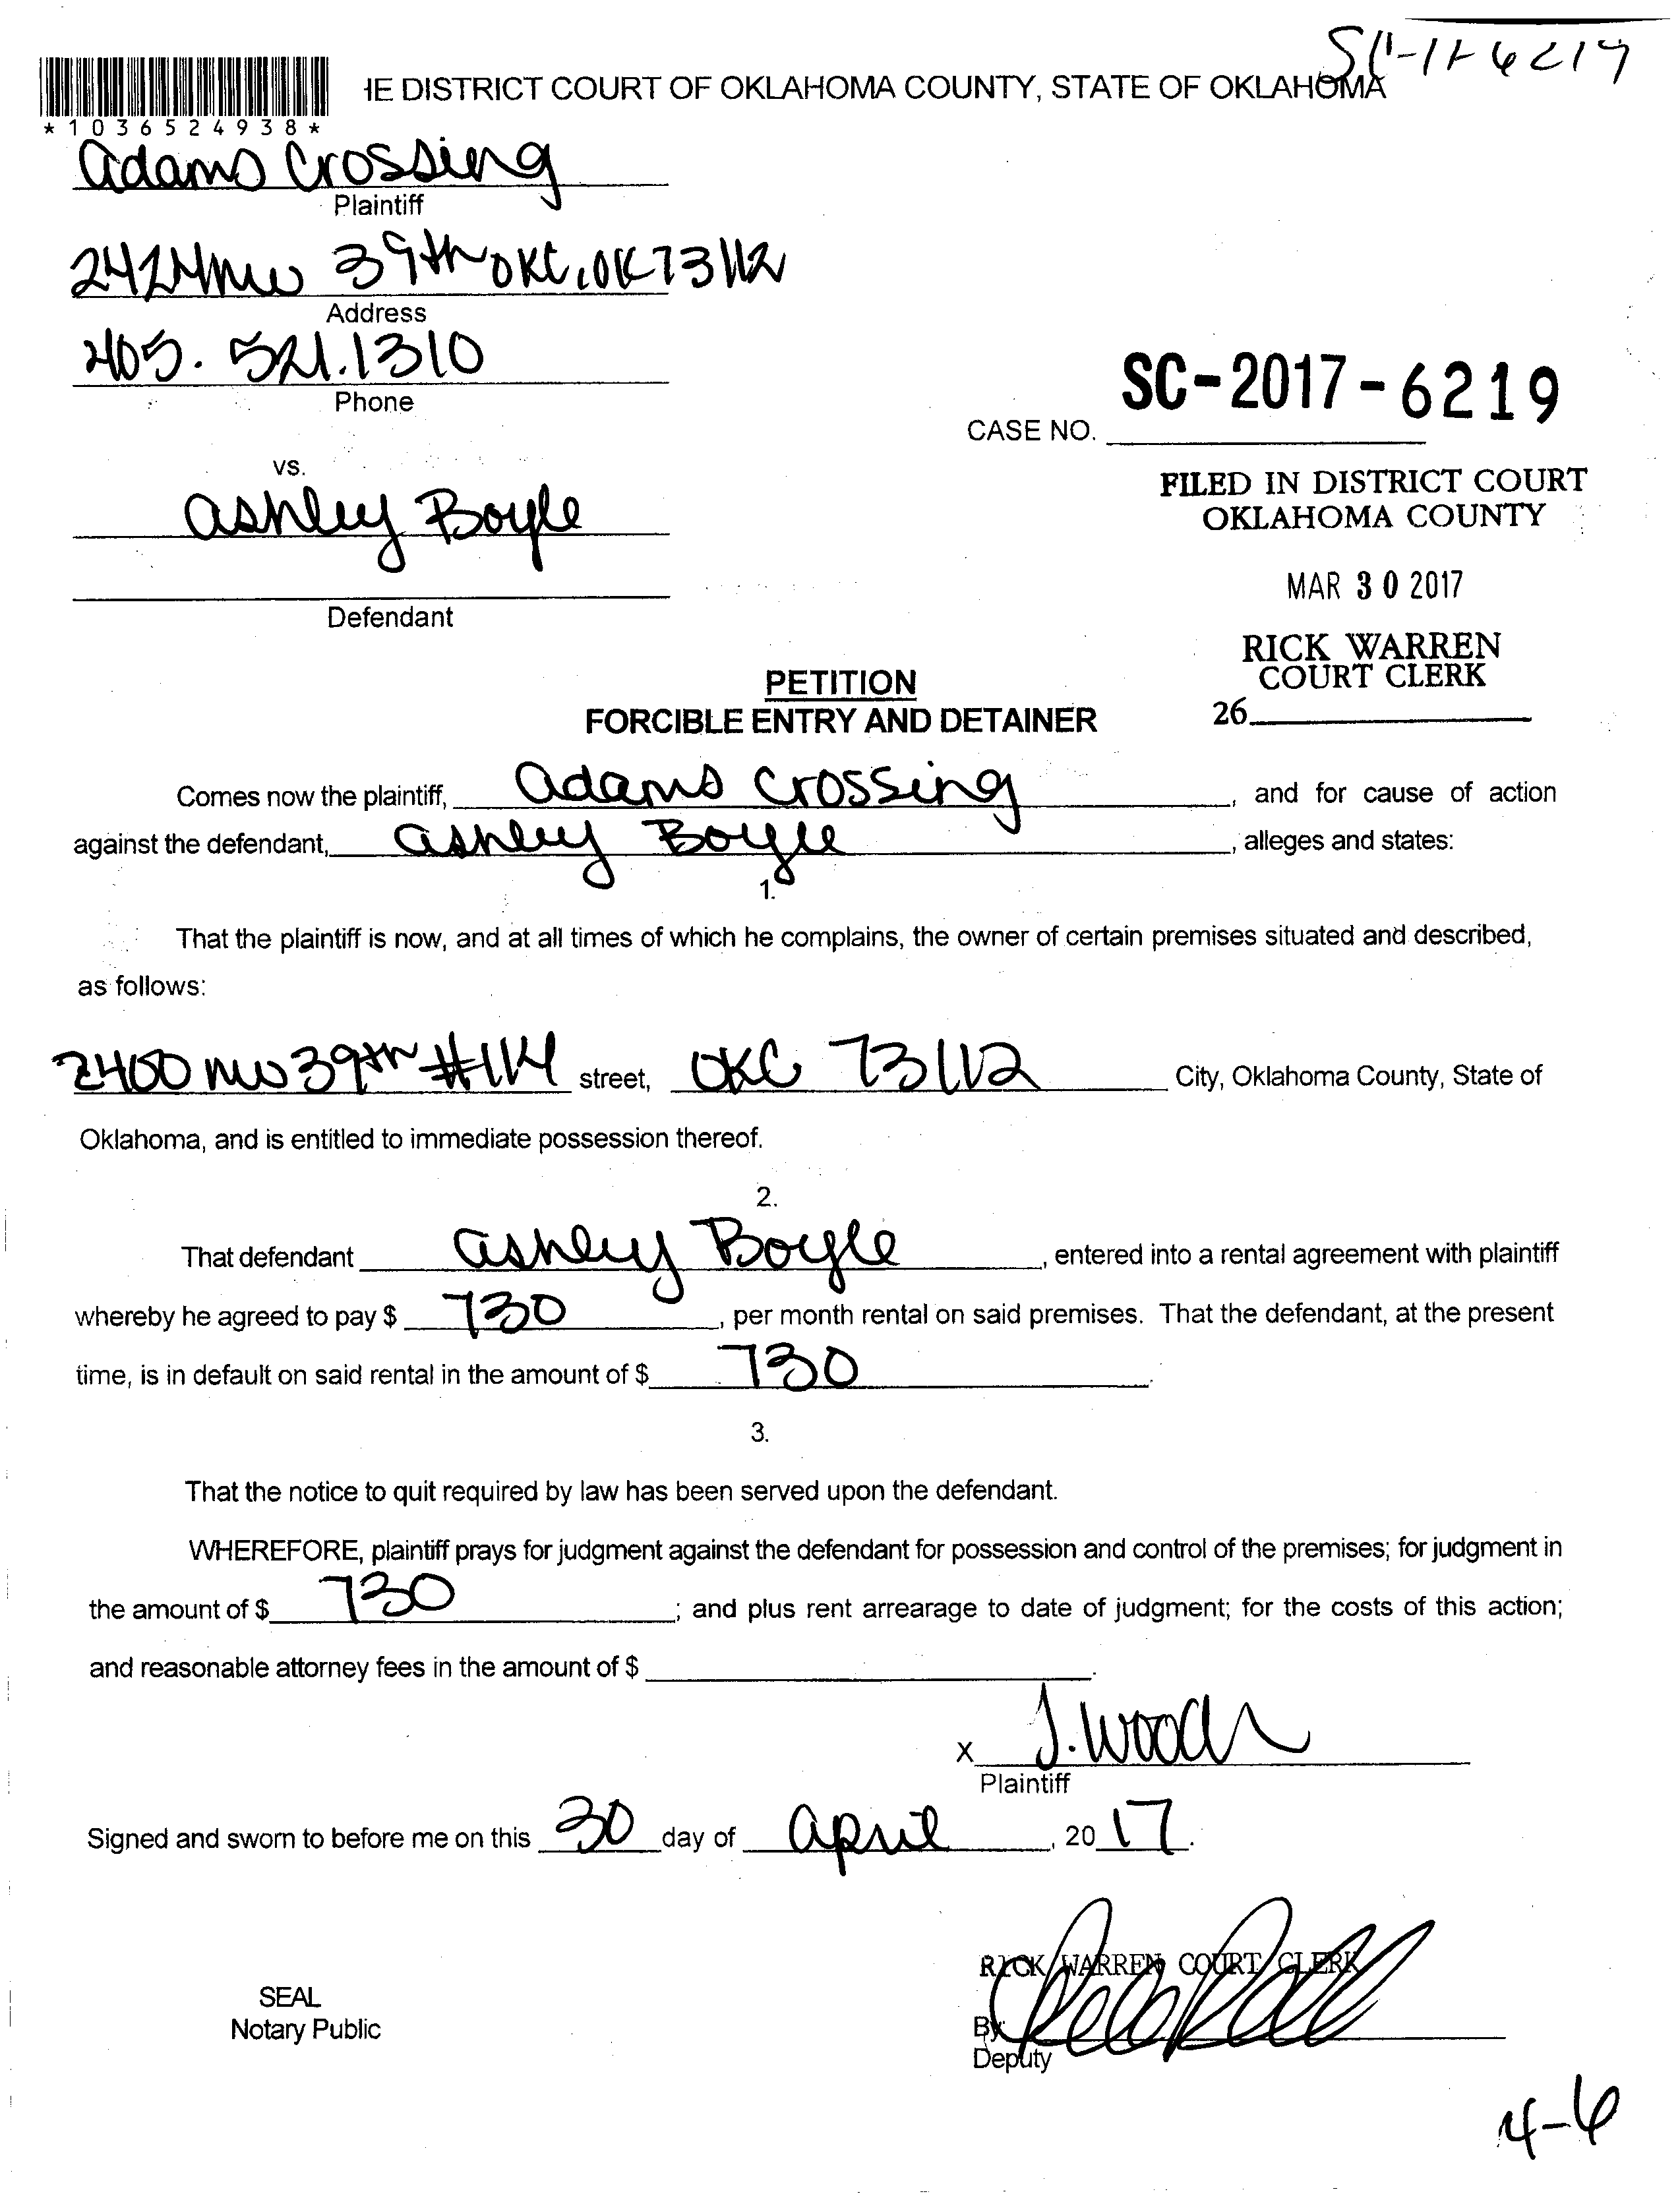 SC-17-6219
IE DISTRICT COURT OF OKLAHOMA COUNTY, STATE OF OKLAHOMA
*1036524938*
Adams Crossing
Plaintiff
2424 NW 39th OKC, OK 73112
Address
405. 521.1310
Phone
SC-2017-6219
CASE NO.
vs.
Ashley Boyle
FILED IN DISTRICT COURT
OKLAHOMA COUNTY
MAR 30 2017
Defendant
RICK WARREN
COURT CLERK
26
PETITION
FORCIBLE ENTRY AND DETAINER
Comes now the plaintiff, Adams Crossing, and for cause of action
against the defendant, Ashley Boyle, alleges and states:
1.
That the plaintiff is now, and at all times of which he complains, the owner of certain premises situated and described,
as follows:
2400 NW 39th #114 street, OKC 73112 City, Oklahoma County, State of
Oklahoma, and is entitled to immediate possession thereof.
2.
That defendant Ashley Boyle, entered into a rental agreement with plaintiff
whereby he agreed to pay $ 730, per month rental on said premises. That the defendant, at the present
time, is in default on said rental in the amount of $ 730.
3.
That the notice to quit required by law has been served upon the defendant.
WHEREFORE, plaintiff prays for judgment against the defendant for possession and control of the premises; for judgment in
the amount of $ 730; and plus rent arrearage to date of judgment; for the costs of this action;
and reasonable attorney fees in the amount of $ .
x J. Woods
Plaintiff
Signed and sworn to before me on this 30 day of April, 2017.
RICK WARREN COURT CLERK
SEAL
Notary Public
By
Deputy
4-6